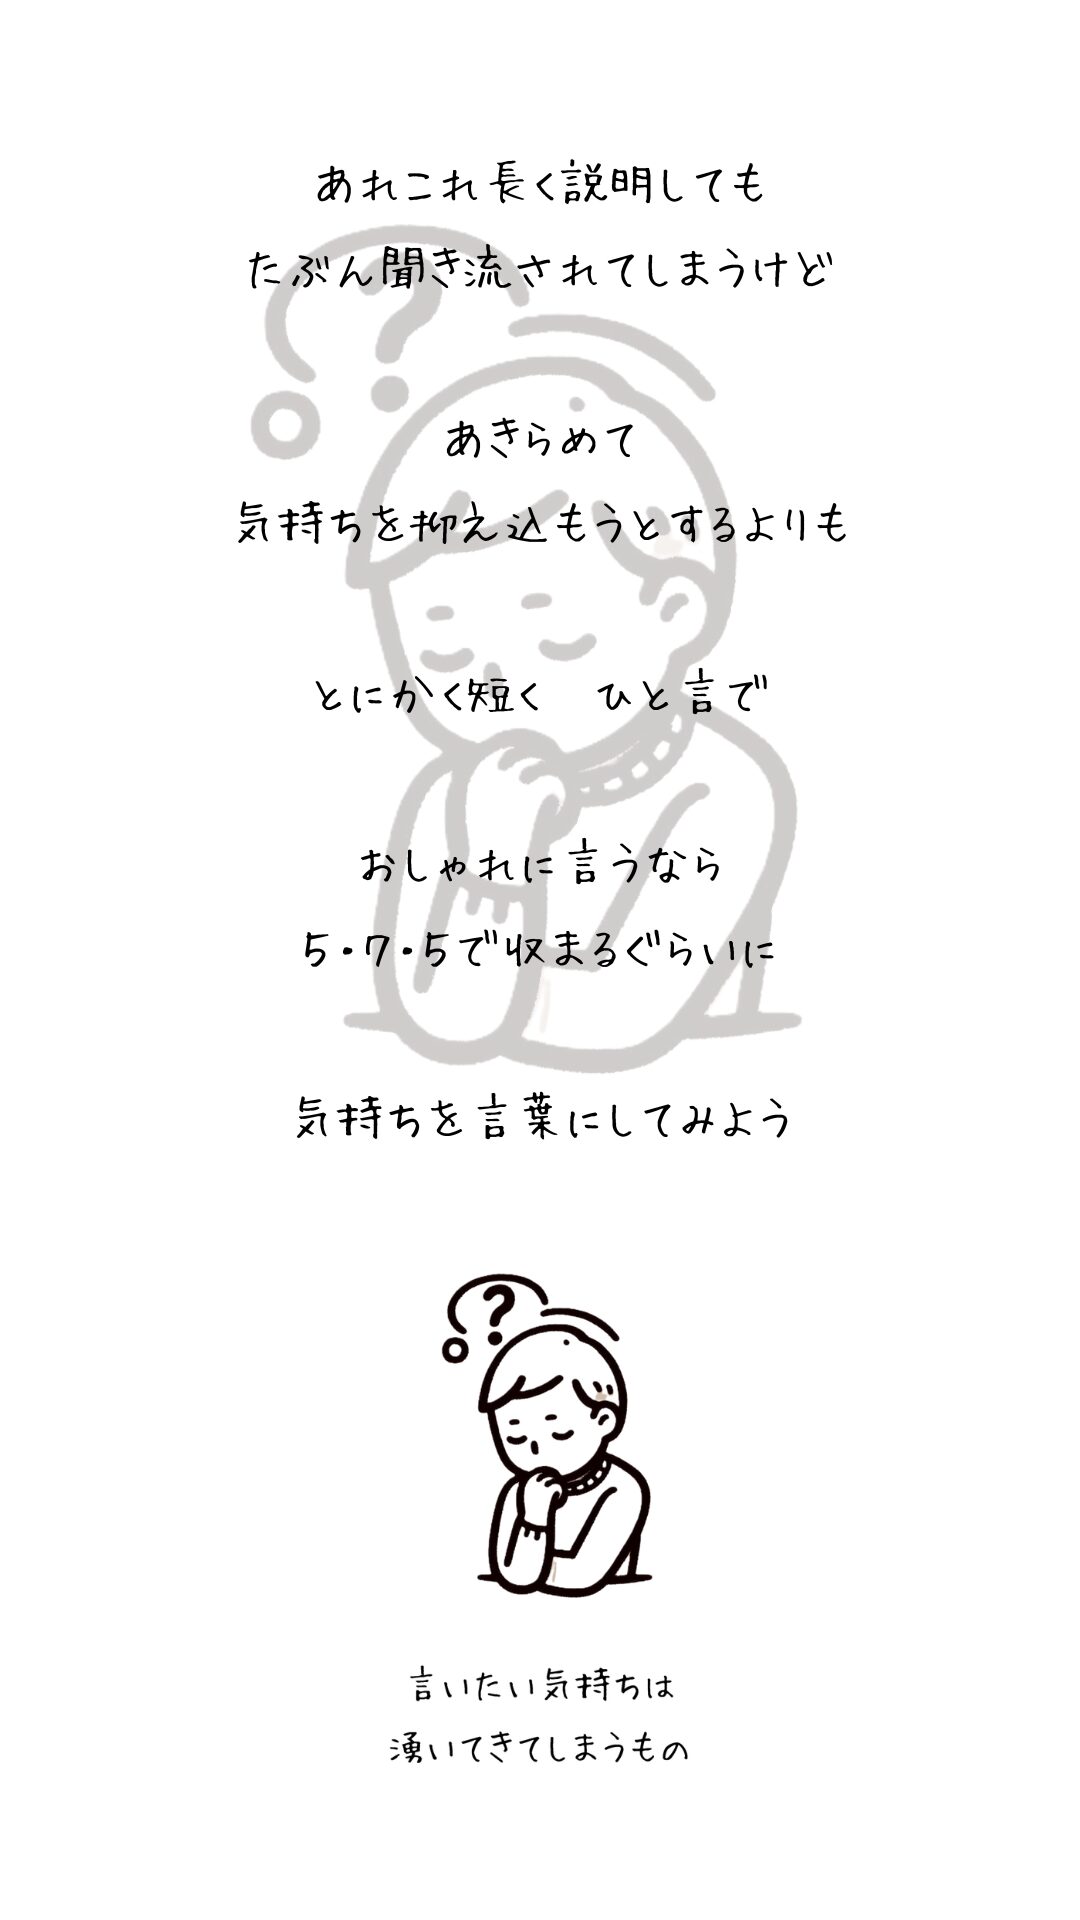 あれこれ長く説明しても
たぶん聞き流されてしまうけど
あきらめて
気持ちを抑え込もうとするよりも
とにかく短く　ひと言で
おしゃれに言うなら
5・7・5で収まるぐらいに
気持ちを言葉にしてみよう
?
言いたい気持ちは
湧いてきてしまうもの